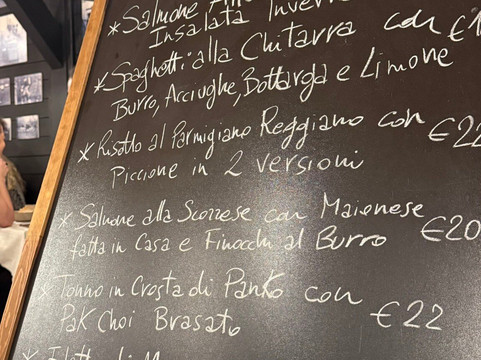 *Salmone
Insalata Inver
*Spaghetti alla Chitarra con €1
Burro, Acciughe, Bottarga e Limone
*Risotto al Parmigiano Reggiano con €22
Piccione in 2 versioni
*Salmone alla Scozzese con Maionese
fatta in Casa e Finocchi al Burro €20
*Tonno in Crosta di Panko con
Pak Choi Brasato €22